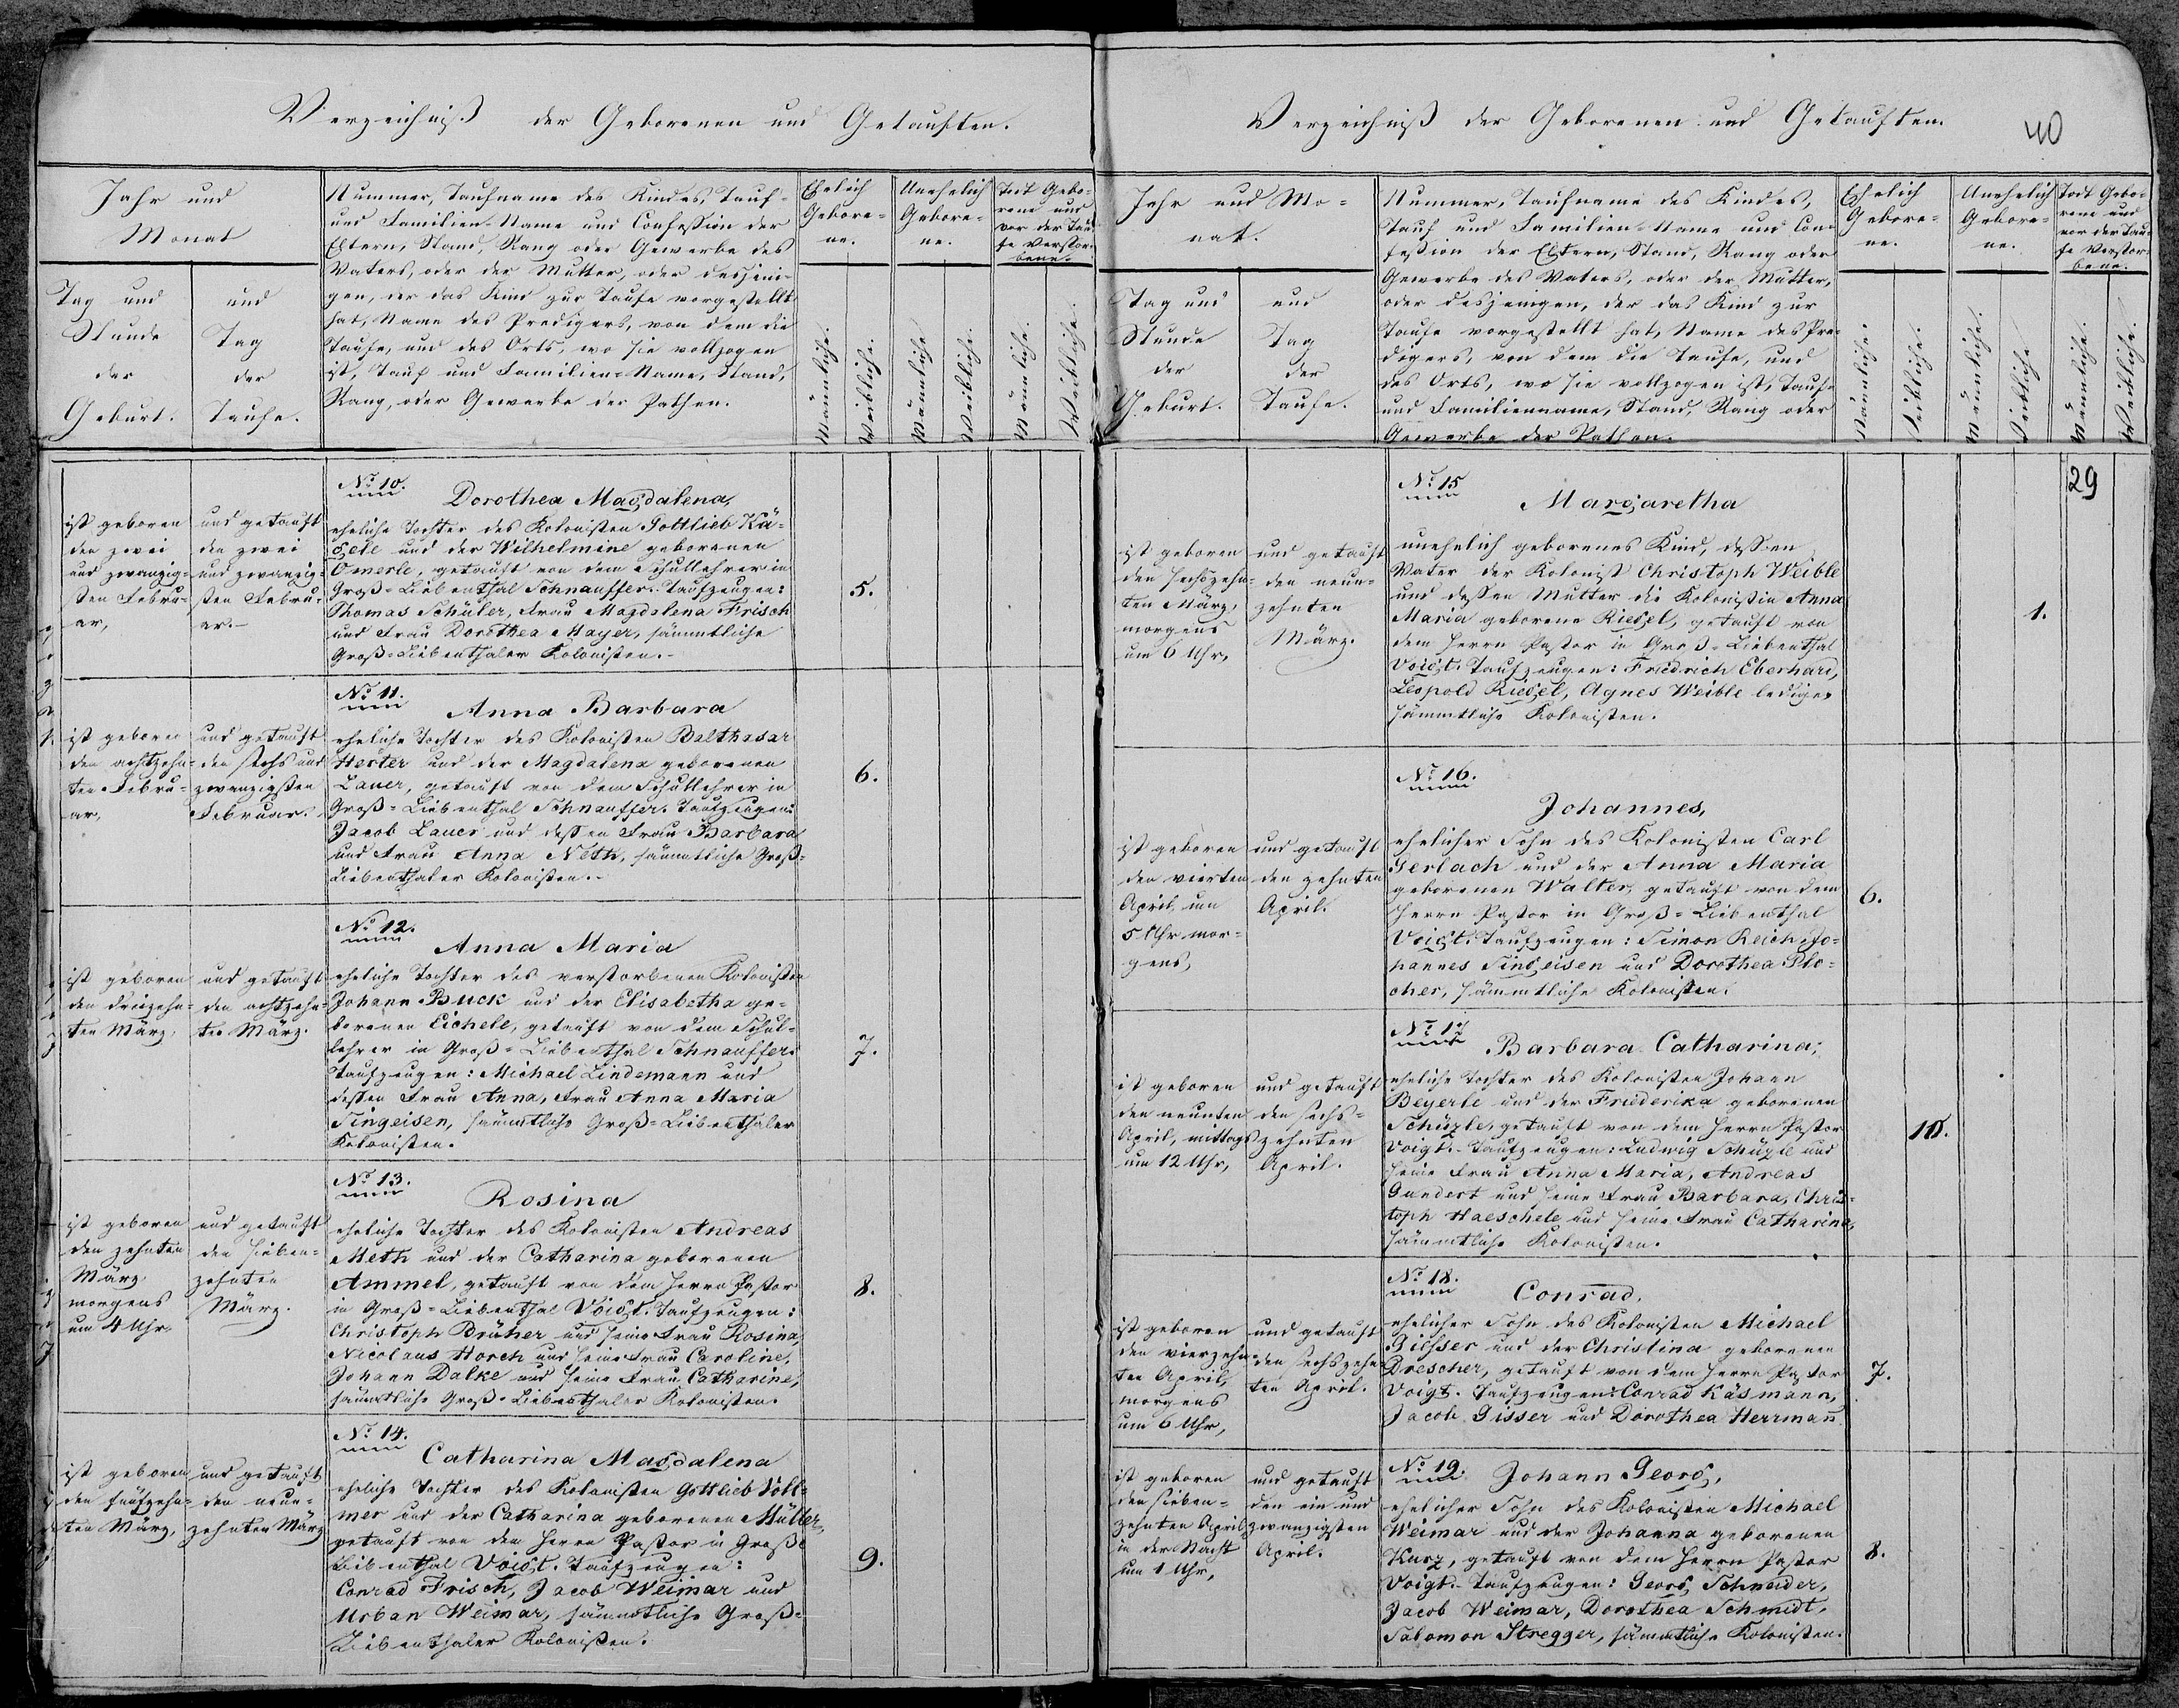 Verzeichniß der Geborenen und Getauften.
Jahr und
Monat
Tag und
Stunde
der
Geburt.
und
Tag
der
Taufe.
Nummer, Taufname des Kindes, Tauf-
und Familien-Name und Confession der
Eltern, Stand, Rang oder Gewerbe des
Vaters, oder der Mutter, oder desjeni-
gen, der das Kind zur Taufe vorgestellt
hat, Name des Predigers, von dem die
Taufe, und des Orts, wo sie vollzogen
ist, Tauf und Familien-Name, Stand,
Rang, oder Gewerbe der Pathen.
Ehelich
Gebore-
ne.
Unehelich
Gebore-
ne.
Todt Gebo-
rene und
vor der Tau-
fe Verstor-
bene.
Männliche.
Weibliche.
Männliche
Weibliche.
Männliche.
Weibliche.
ist geboren
den zwei
und zwanzig-
sten Febru-
ar,
und getauft
den zwei
und zwanzig-
sten Febru-
ar.
No 10.
Dorothea Magdalena,
eheliche Tochter des Kolonisten Gottlieb Kä-
gele und der Wilhelmine geborenen
Omerle, getauft von dem Schullehrer in
Groß-Liebenthal Schnauffer. Taufzeugen:
Thomas Schüler, Frau Magdalena Frisch
und Frau Dorothea Mayer, sämmtliche
Groß-Liebenthaler Kolonisten.
5.
ist geboren
den achtzehn-
ten Febru-
ar,
und getauft
den sechs und
zwanzigsten
Februar.
No 11.
Anna Barbara
eheliche Tochter des Kolonisten Balthasar
Herter und der Magdalena geborenen
Lauer, getauft von dem Schullehrer in
Groß-Liebenthal Schnauffer. Taufzeugen:
Jacob Lauer und dessen Frau Barbara
und Frau Anna Neth, sämmtliche Groß-
Liebenthaler Kolonisten.
6.
ist geboren
den dreizehn-
ten März,
und getauft
den achtzehn-
ten März.
No 12.
Anna Maria
eheliche Tochter des verstorbenen Kolonisten
Johann Buck und der Elisabetha ge-
borenen Eichele, getauft von dem Schul-
lehrer in Groß-Liebenthal Schnauffer.
Taufzeugen: Michael Lindemann und
dessen Frau Anna, Frau Anna Maria
Singeisen, sämmtliche Groß-Liebenthaler
Kolonisten.
7.
ist geboren
den zehnten
März
morgens
um 4 Uhr,
und getauft
den sieben-
zehnten
März.
No 13.
Rosina
eheliche Tochter des Kolonisten Andreas
Meth und der Catharina geborenen
Ammel, getauft von dem Herrn Pastor
in Groß-Liebenthal Voigt. Taufzeugen:
Christoph Brüher und seine Frau Rosina,
Nicolaus Horch und seine Frau Caroline,
Johann Dalke und seine Frau Catharine,
sämmtliche Groß-Liebenthaler Kolonisten.
8.
ist geboren
den fünfzehn-
ten März,
und getauft
den neun-
zehnten März
No 14.
Catharina Magdalena
eheliche Tochter des Kolonisten Gottlieb Voll-
mer und der Catharina geborenen Müller,
getauft von dem Herrn Pastor in Groß-
Liebenthal Voigt. Taufzeugen:
Conrad Frisch, Jacob Weimar und
Urban Weimar, sämmtliche Groß-
Liebenthaler Kolonisten.
9.
Verzeichniß der Geborenen und Getauften.
40
Jahr und Mo-
nat.
Tag und
Stunde
der
Geburt.
und
Tag
der
Taufe.
Nummer, Taufname des Kindes,
Tauf und Familien-Name und Con-
fession der Eltern, Stand, Rang oder
Gewerbe des Vaters, oder der Mutter,
oder desjenigen, der das Kind zur
Taufe vorgestellt hat, Name des Pre-
digers, von dem die Taufe, und
des Orts, wo sie vollzogen ist, Tauf-
und Familienname, Stand, Rang oder
Gewerbe der Pathen.
Ehelich
Gebore-
ne.
Unehelich
Gebore-
ne.
Todt Gebo-
rene und
vor der Tau-
fe Verstor-
bene.
Männliche.
Weibliche.
Männliche.
Weibliche
Männliche.
Weibliche.
29
ist geboren
den sechszehn-
ten März,
morgens
um 6 Uhr,
und getauft
den neun-
zehnten
März.
No 15
Margaretha
unehelich geborenes Kind, dessen
Vater der Kolonist Christoph Weible
und dessen Mutter die Kolonistin Anna
Maria geborene Riegel, getauft von
dem Herrn Pastor in Groß-Liebenthal
Voigt. Taufzeugen: Friedrich Eberhard,
Leopold Riegel, Agnes Weible ledige,
sämmtliche Kolonisten.
1.
ist geboren
den vierten
April um
5 Uhr mor-
gens,
und getauft
den zehnten
April.
No 16.
Johannes,
ehelicher Sohn des Kolonisten Carl
Gerlach und der Anna Maria
geborenen Walter, getauft von dem
Herrn Pastor in Groß-Liebenthal
Voigt. Taufzeugen: Simon Reich, Jo-
hannes Singeisen und Dorothea Plo-
cher, sämmtliche Kolonisten.
6.
ist geboren
den neunten
April, mittags
um 12 Uhr,
und getauft
den sechs-
zehnten
April.
No 17
Barbara Catharina,
eheliche Tochter des Kolonisten Johann
Beyerle und der Friederika geborenen
Schüzle, getauft von dem Herrn Pastor
Voigt. Taufzeugen: Ludwig Schüzle und
seine Frau Anna Maria, Andreas
Gundert und seine Frau Barbara, Chris-
toph Haeschele und seine Frau Catharina,
sämmtliche Kolonisten.
10.
ist geboren
den vierzehn-
ten April,
morgens
um 6 Uhr,
und getauft
den sechszehn-
ten April.
No 18.
Conrad,
ehelicher Sohn des Kolonisten Michael
Gießer und der Christina geborenen
Drescher, getauft von dem Herrn Pastor
Voigt. Taufzeugen: Conrad Käsmann,
Jacob Gisser und Dorothea Herrmañ
7.
ist geboren
den sieben-
zehnten April
in der Nacht
um 1 Uhr,
und getauft
den ein und
zwanzigsten
April.
No 19.
Johann Georg,
ehelicher Sohn des Kolonisten Michael
Weimar und der Johanna geborenen
Kurz, getauft von dem Herrn Pastor
Voigt. Taufzeugen: Georg Schneider,
Jacob Weimar, Dorothea Schmidt,
Salomon Stregger, sämmtliche Kolonisten.
8.